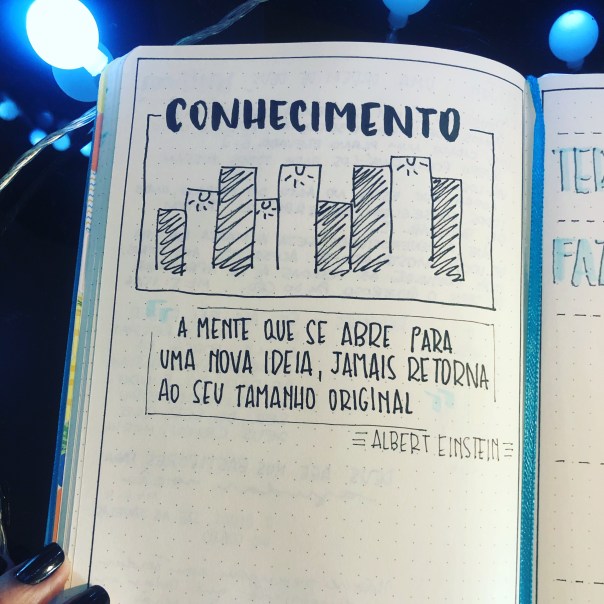 CONHECIMENTO
" A MENTE QUE SE ABRE PARA
UMA NOVA IDEIA, JAMAIS RETORNA
AO SEU TAMANHO ORIGINAL "
ALBERT EINSTEIN